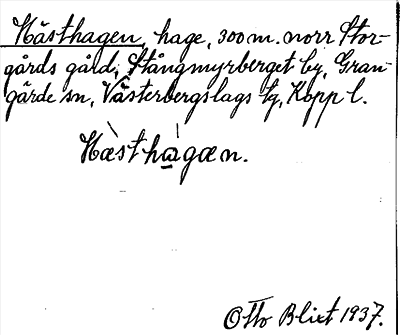 Hästhagen, hage, 300 m. norr Stor-
gårds gård, Stångmyrberget by, Gran-
gärde sn, Västerbergslags tg, Kopp l.
Hæ̀sthàgæn.
Otto Blixt 1937.